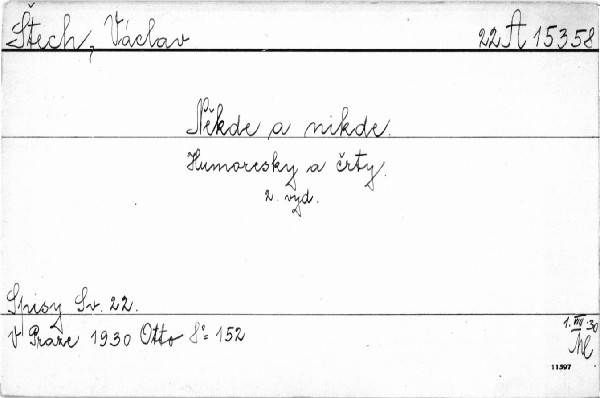 Štech, Václav 22 A 15358
Někde a nikde.
Humoresky a črty.
2. vyd.
Spisy Sv. 22.
V Praze 1930 Otto 8° 152
1. VII. 30
11597